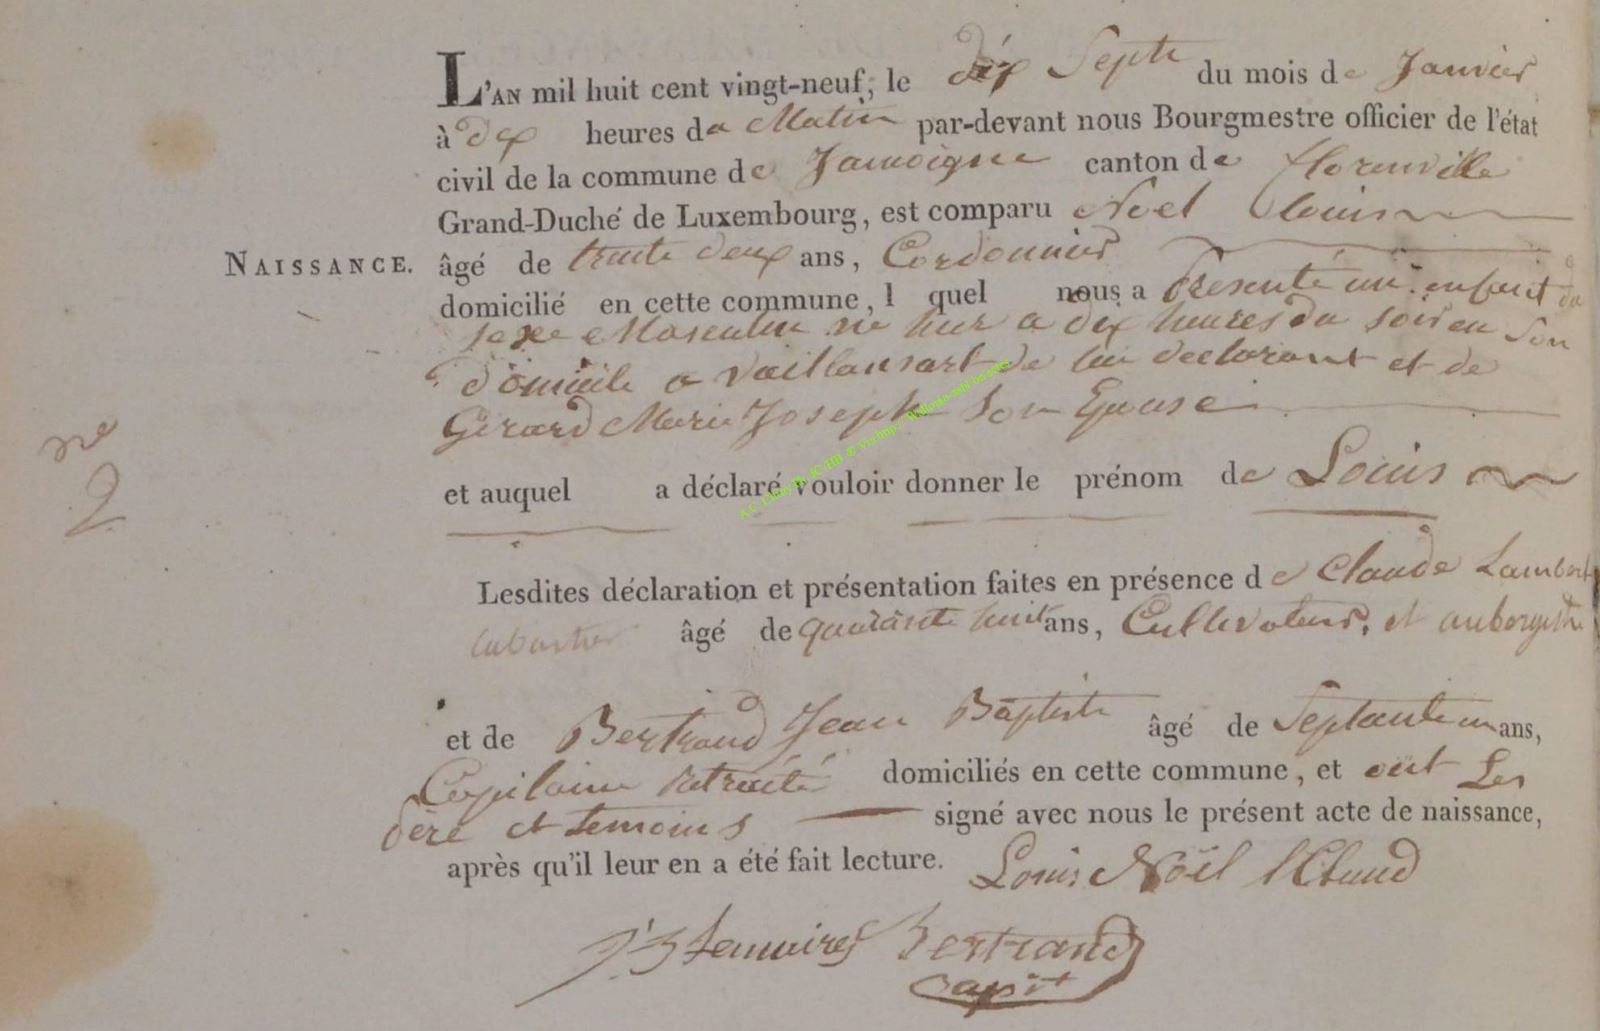 L'AN mil huit cent vingt-neuf, le dix Septe du mois de Janvier
à dix heures du Matin par-devant nous Bourgmestre officier de l'état
civil de la commune de Jamoigne canton de florenville
Grand-Duché de Luxembourg, est comparu Noel Louis
NAISSANCE. âgé de trente deux ans, Cordonnier
domicilié en cette commune, l quel nous a Presenté un enfant du
sexe Masculin né hier a dix heures du soir en son
domicile a vaillansart de lui declarant et de
Gerard Marie Joseph son Epouse
et auquel a déclaré vouloir donner le prénom de Louis
ne
2
Lesdites déclaration et présentation faites en présence de Claude Lambert
âgé de quarante huit ans, Cultivateur, et aubergiste
et de Bertrand Jean Baptiste âgé de Septante un ans,
Capitaine retraité domiciliés en cette commune, et ont Les
père et temoins signé avec nous le présent acte de naissance,
après qu'il leur en a été fait lecture. Louis Noël Claude
Bertrand
capit